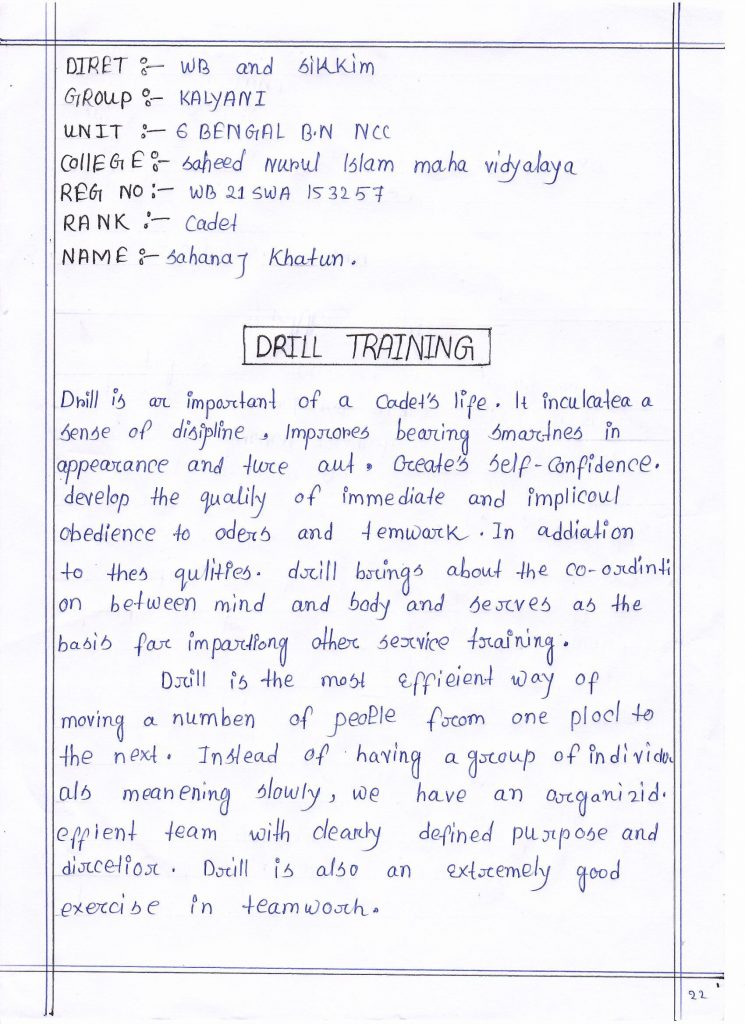 DIRET :- WB and Sikkim
GROUP :- KALYANI
UNIT :- 6 BENGAL B.N NCC
COllEGE :- Saheed Nurul Islam maha vidyalaya
REG NO :- WB 21 SWA 153257
RANK :- Cadet
NAME :- Sahanaj Khatun.
DRILL TRAINING
Drill is ar important of a Cadet's life. It inculcatea a
sense of disipline, Improres bearing smartnes in
appearance and ture aut. Create's self-Confidence.
develop the quality of immediate and implicoul
obedience to oders and temwork. In addiation
to thes qulities. drill brings about the co-ordinti
on between mind and body and serves as the
basis far impartiong other service training.
Drill is the most efficient way of
moving a numben of people from one plocl to
the next. Instead of having a group of individu
als meanening slowly, we have an organizid.
effient team with clearly defined purpose and
dircetior. Drill is also an extremely good
exercise in teamworh.
22